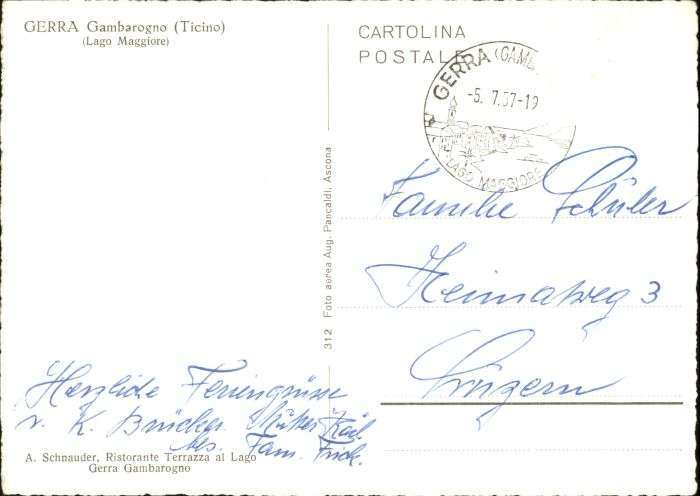 GERRA Gambarogno (Ticino)
(Lago Maggiore)
CARTOLINA
POSTALE
GERRA (GAMB
-5. 7.57-19
LAGO MAGGIORE
312 Foto aerea Aug. Pancaldi, Ascona
Familie Schüler
Heimatweg 3
Luzern
Herzliche Feriengrüsse
v. K. Brücker
Fam. Frick.
A. Schnauder, Ristorante Terrazza al Lago
Gerra Gambarogno